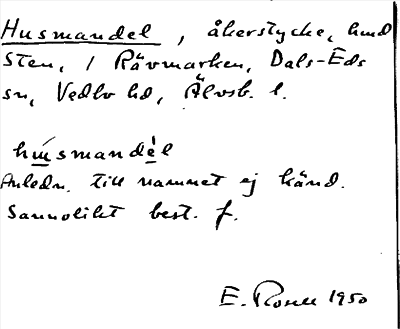 Husmandel, åkerstycke, hmd
Sten, i Rävmarken, Dals-Eds
sn, Vedbo hd, Älvsb. l.
husmandèl
Anledn. till namnet ej känd.
Sannolikt best. f.
E. Rosell 1950